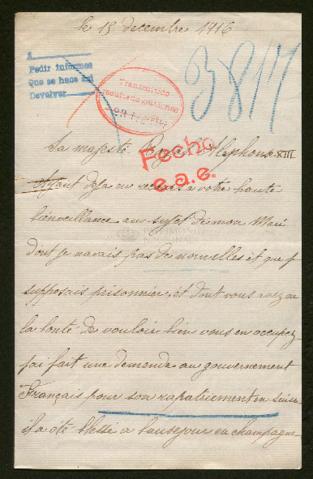 le 15 decembre 1916
A
Pedir informes
Que se hace así
Devolver
3817
Transmitido
Sa majesté Alphonse XIII
Fecho
e.a.e.
Ayant deja eu recours a votre haute
bienveillance au sujet de mon Mari
dont je navais pas de nouvelles et que je
supposais prisonnier, et dont vous avez eu
la bonté de vouloir bien vous en occupez
jai fait une demande au gouvernement
Français pour son rapatriement en suisse
il a été blessé a Beausejour en champagne